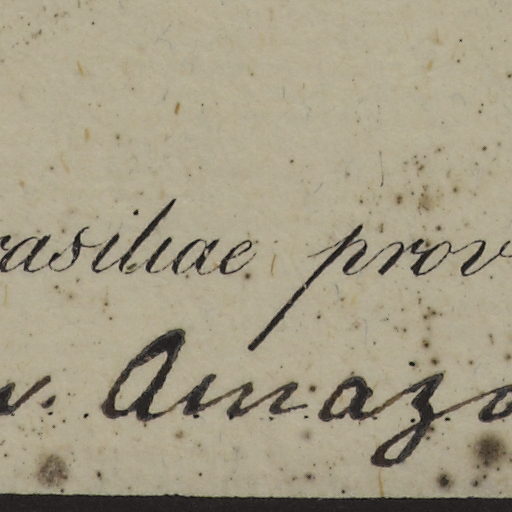 rasiliae prov
v. Amazo